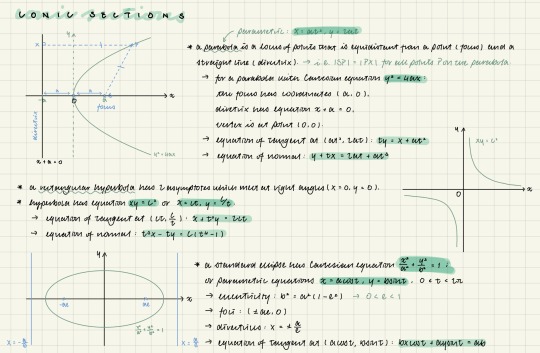 CONIC SECTIONS
parametric: x = at², y = 2at
* a parabola is a locus of points that is equidistant from a point (focus) and a
straight line (directrix). → i.e. |SP| = |PX| for all points P on the parabola
→ for a parabola with Cartesian equation y² = 4ax:
the focus has coordinates (a, 0).
directrix has equation x + a = 0.
vertex is at point (0, 0).
→ equation of tangent at (at², 2at): ty = x + at²
→ equation of normal: y + tx = 2at + at³
y
x
0
focus
directrix
x + a = 0
y² = 4ax
y
xy = c²
0
x
* a rectangular hyperbola has 2 asymptotes which meet at right angles (x = 0, y = 0).
* hyperbola has equation xy = c² or x = ct, y = c/t
→ equation of tangent at (ct, c/t): x + t²y = 2ct
→ equation of normal: t³x − ty = c(t⁴ − 1)
* a standard ellipse has Cartesian equation x²/a² + y²/b² = 1;
or parametric equations x = acost, y = bsint. 0 < t < 2π
→ eccentricity: b² = a²(1 − e²) → 0 < e < 1
→ foci: (±ae, 0)
→ directrices: x = ± a/e
→ equation of tangent at (acost, bsint): bxcost + aysint = ab
−ae
ae
x²/a² + y²/b² = 1
x = −a/e
x = a/e